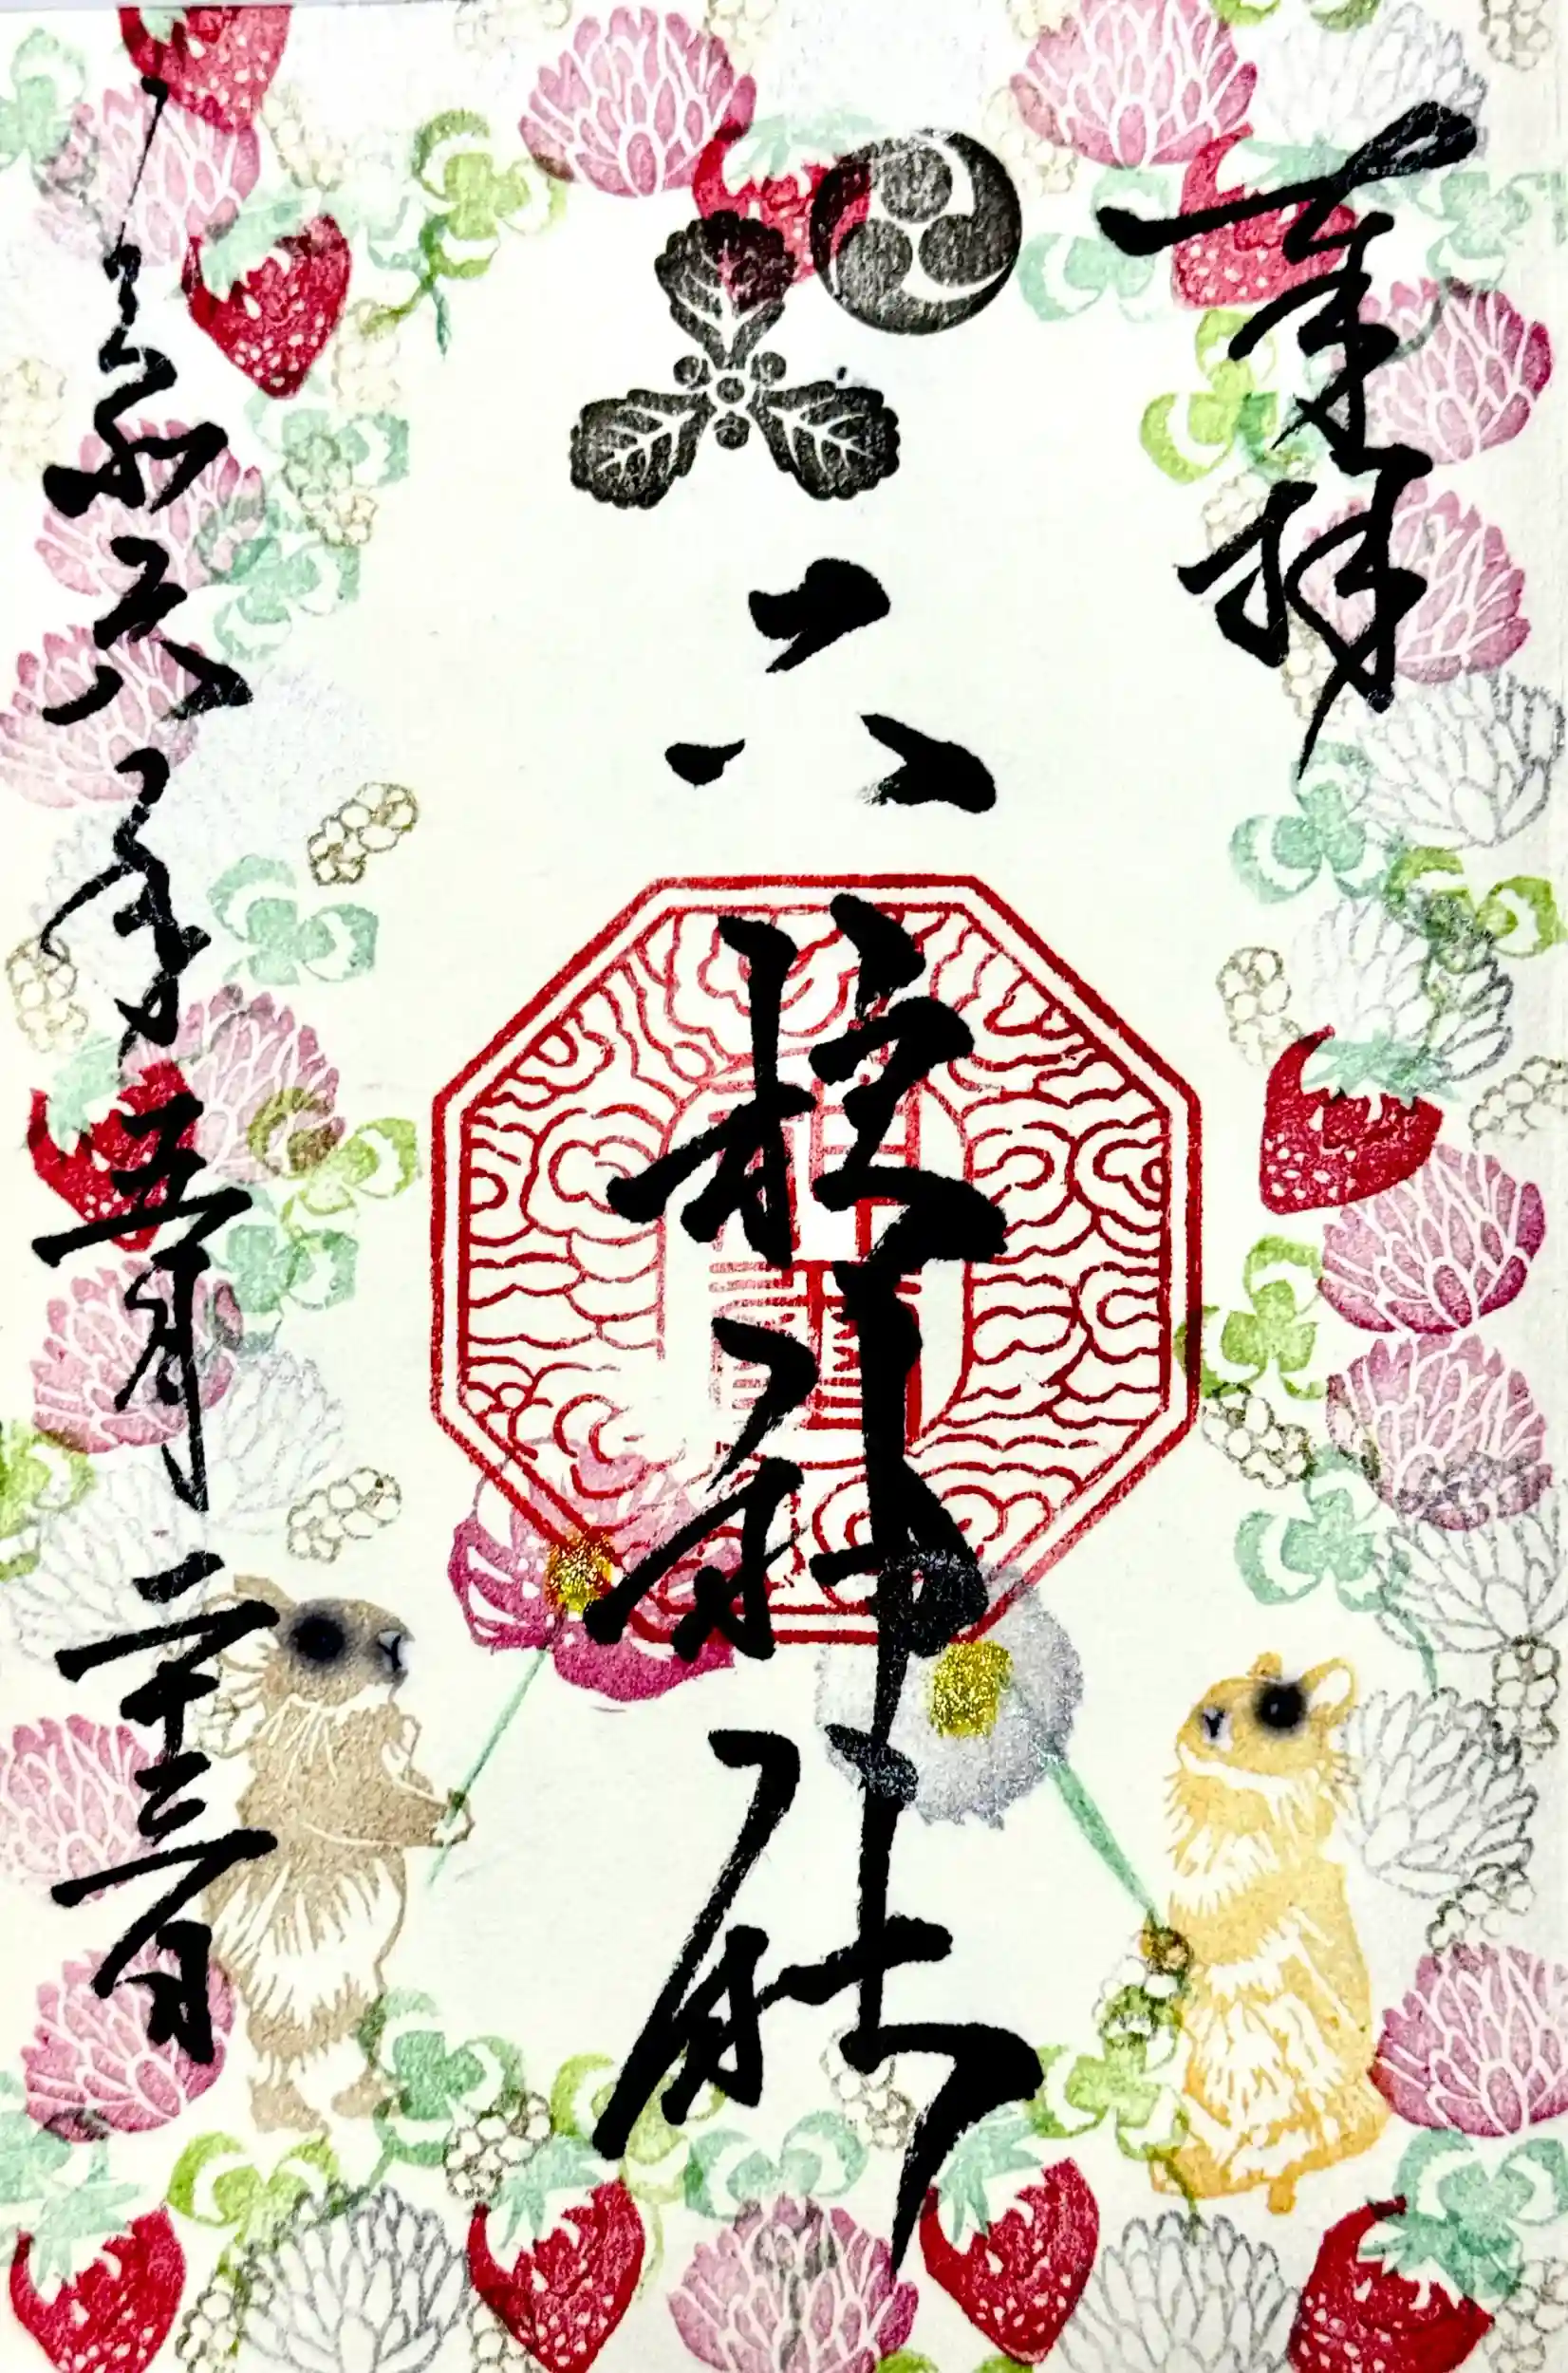 奉拝
六柱神社
令和六年五月二十三日